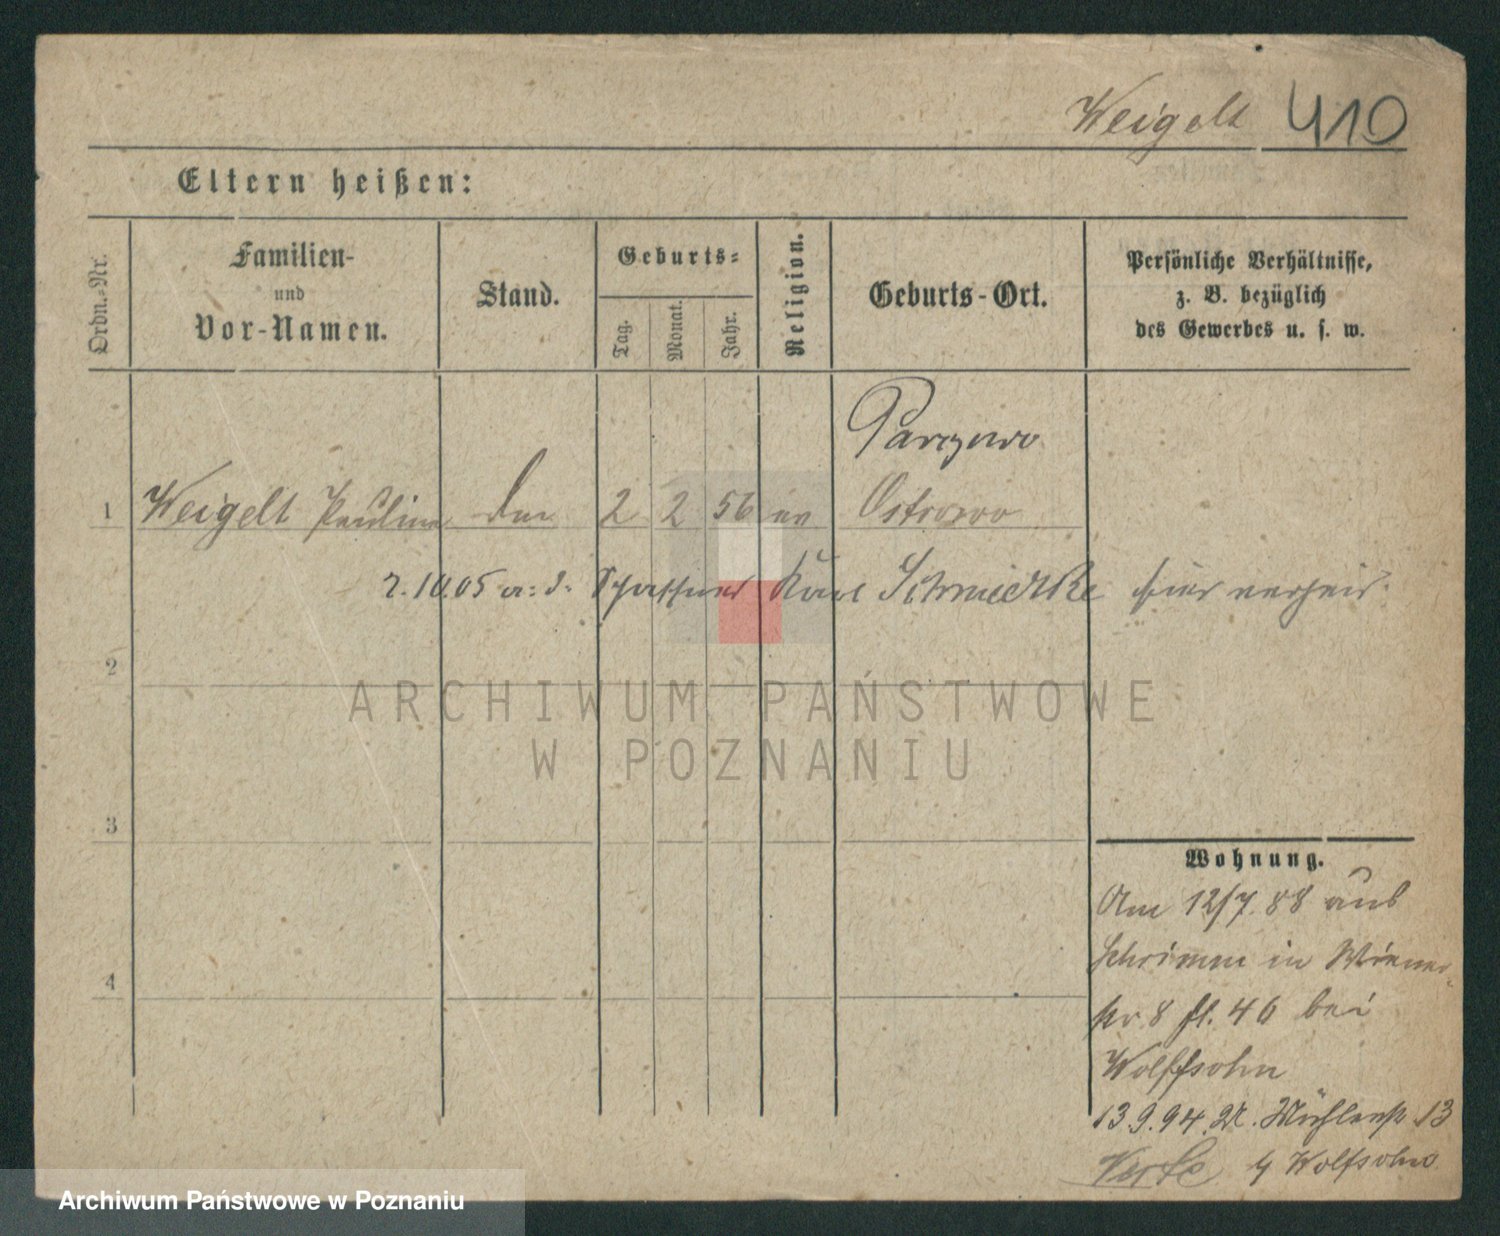 Weigelt 410
Eltern heißen:
Ordn.-Nr.
Familien-
und
Vor-Namen.
Stand.
Geburts-
Tag.
Monat.
Jahr.
Religion.
Geburts-Ort.
Persönliche Verhältnisse,
z. B. bezüglich
des Gewerbes u. s. w.
1 Weigelt Pauline 2 2 56 ev Ostrowo
2.10.05 a: d. Schaffner Karl Schmidtke hier verheir.
2
ARCHIWUM PAŃSTWOWE
W POZNANIU
3
4
Wohnung.
Am 12/7. 88 aus
Schrimm in Wiener-
str 8 fl. 46 bei
Wolffsohn
13.9.94. Mühlenstr 13
b Wolfsohn
Archiwum Państwowe w Poznaniu